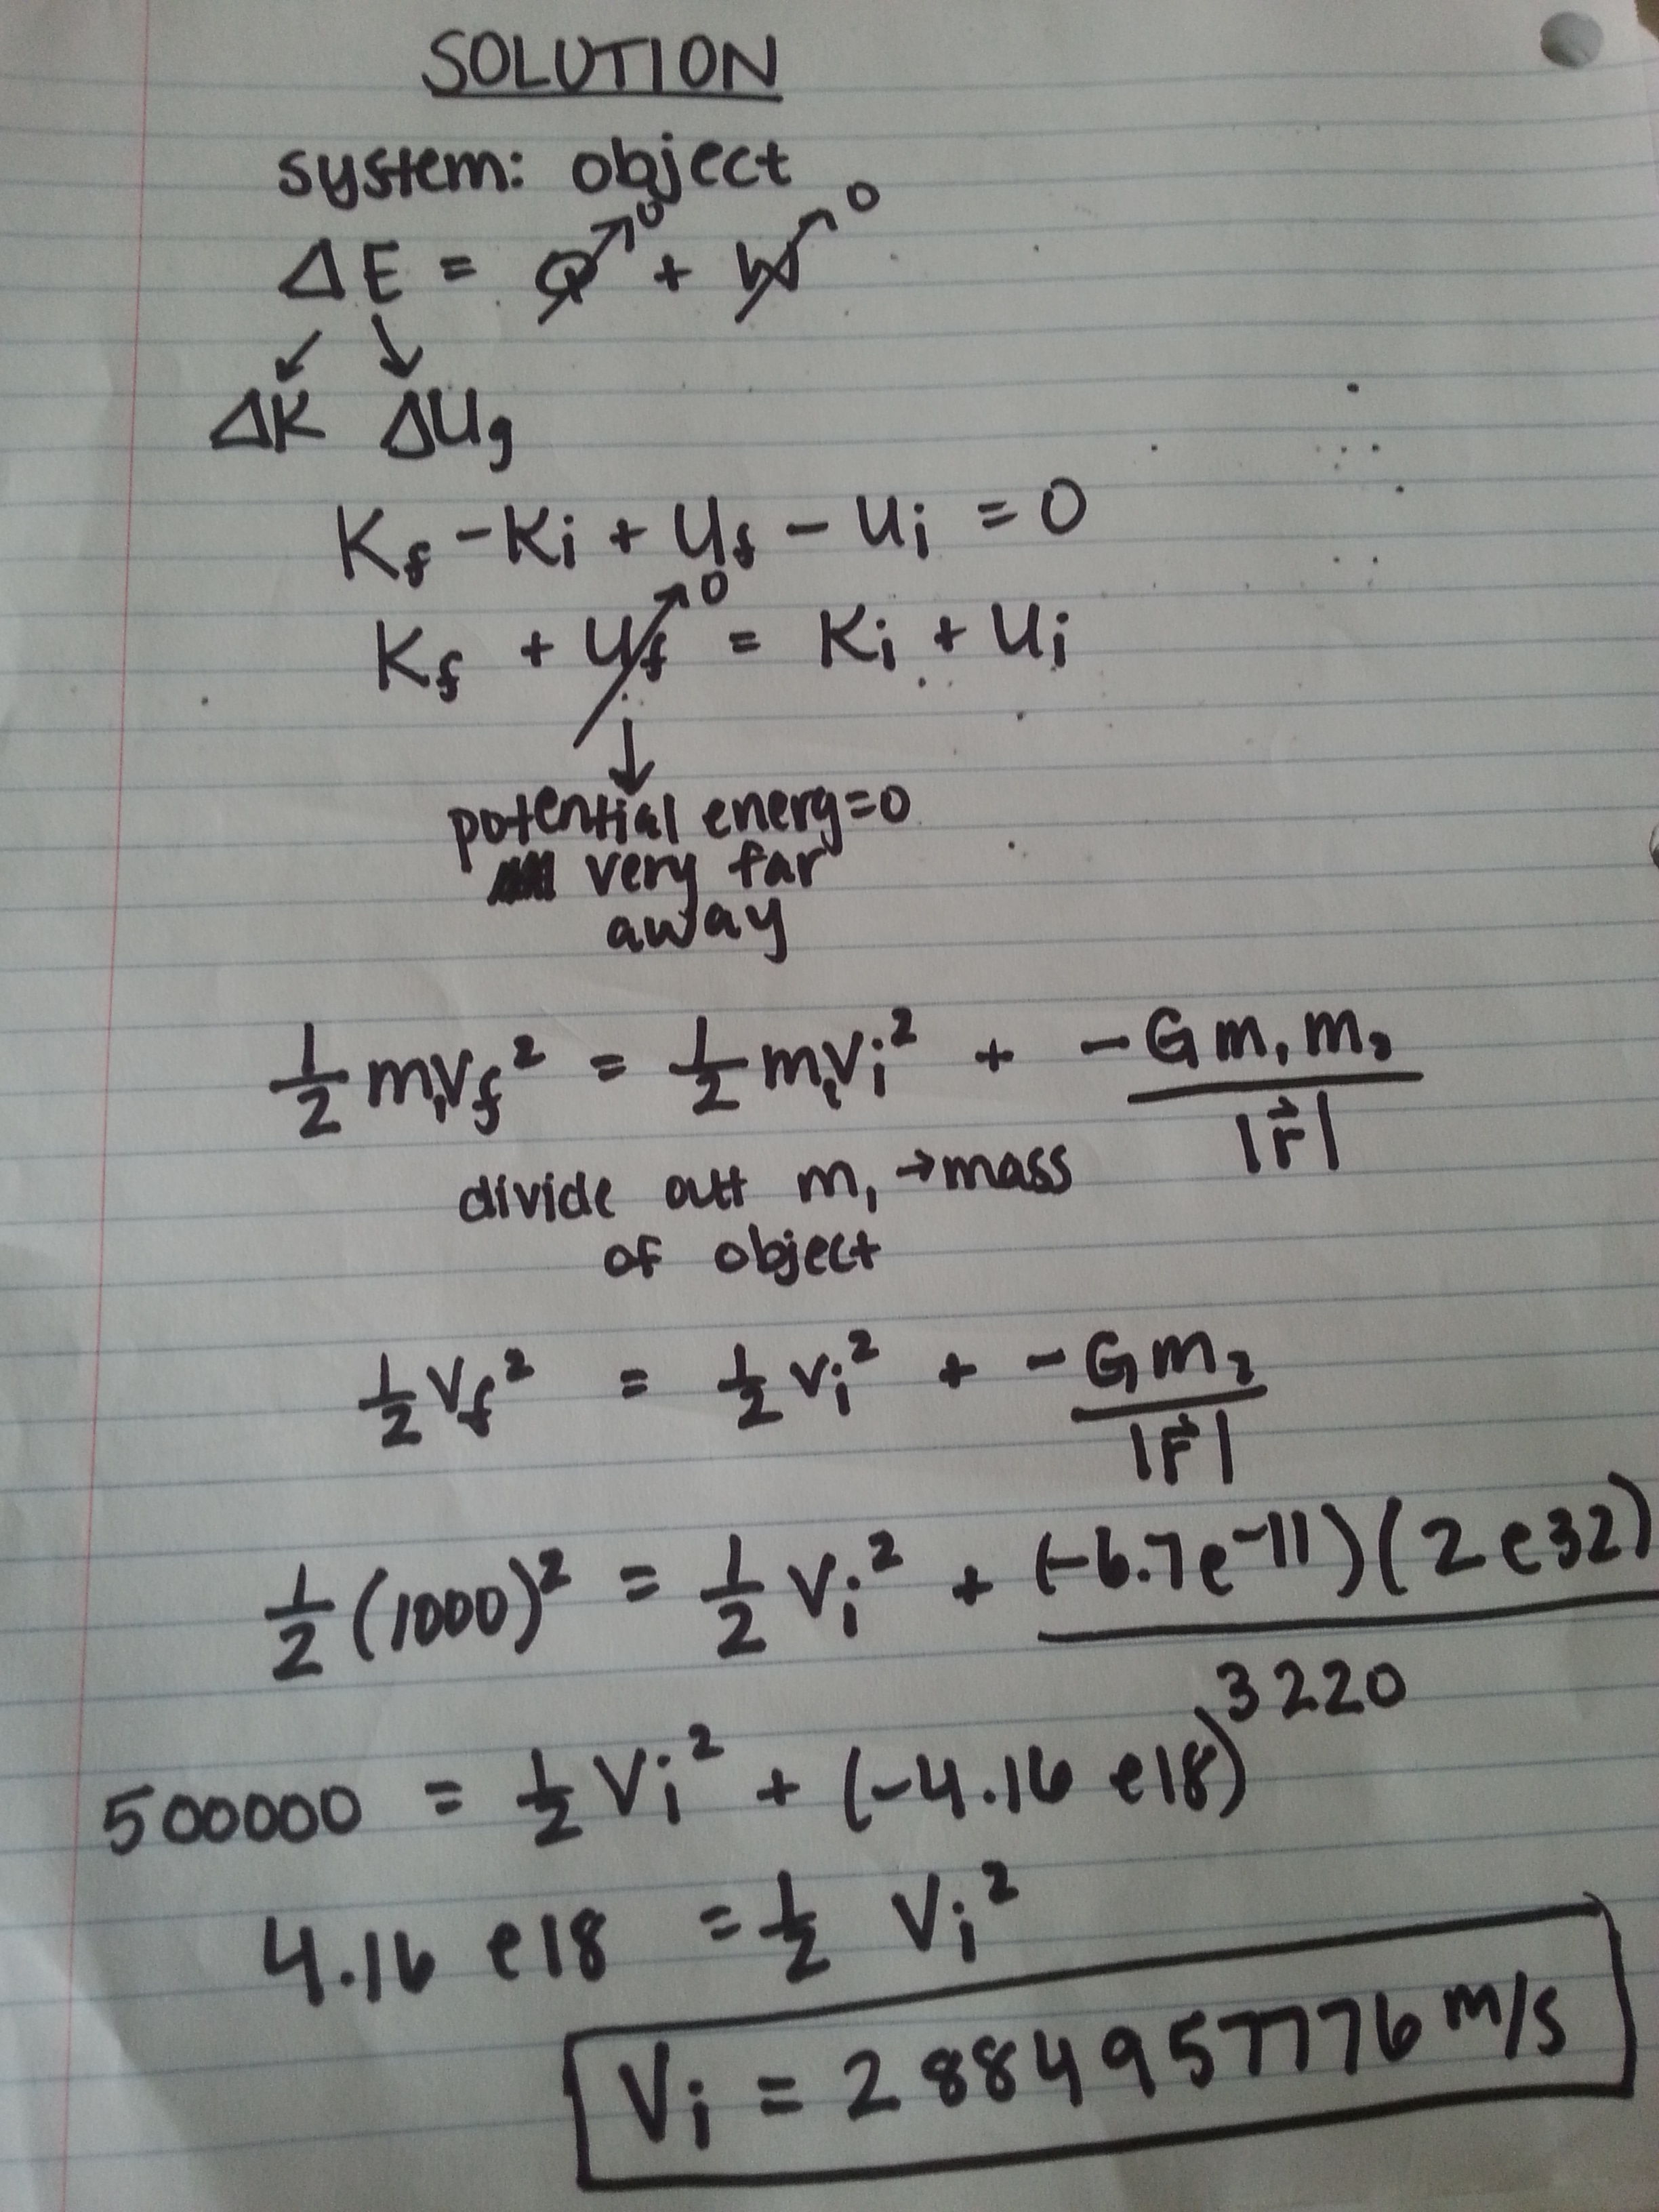 SOLUTION
system: object
ΔE = Q↗0 + W↗0
↙ ↘
ΔK ΔUg
Kf - Ki + Uf - Ui = 0
Kf + Uf↗0 = Ki + Ui
↓
potential energ=0
very far
away
1/2 m₁Vf² = 1/2 m₁Vi² + -Gm₁m₂/|r⃗|
divide out m₁ → mass
of object
1/2 Vf² = 1/2 Vi² + -Gm₂/|r⃗|
1/2 (1000)² = 1/2 Vi² + (-6.7e-11)(2e32)/3220
500000 = 1/2 Vi² + (-4.16 e18)
4.16 e18 = 1/2 Vi²
Vi = 2884957776 m/s